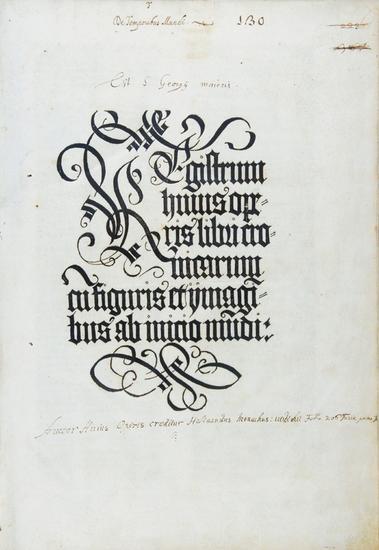 De Temporibus Mundi. 130
Est S. Georgij maioris
REgistrum
huius ope-
ris libri cro-
nicarum
cu figuris et ymagi-
bus ab inicio mudi:
Auctor Huius Operis creditur Monachus: